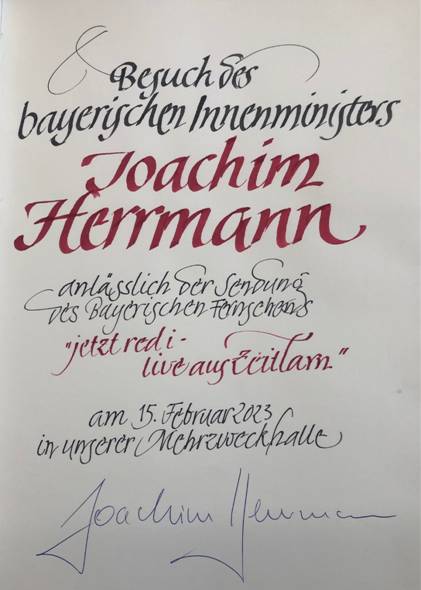 Besuch des
bayerischen Innenministers
Joachim
Herrmann
anlässlich der Sendung
des Bayerischen Fernsehens
"jetzt red i -
live aus Zeitlarn"
am 15. Februar 2023
in unserer Mehrzweckhalle
Joachim Herrmann